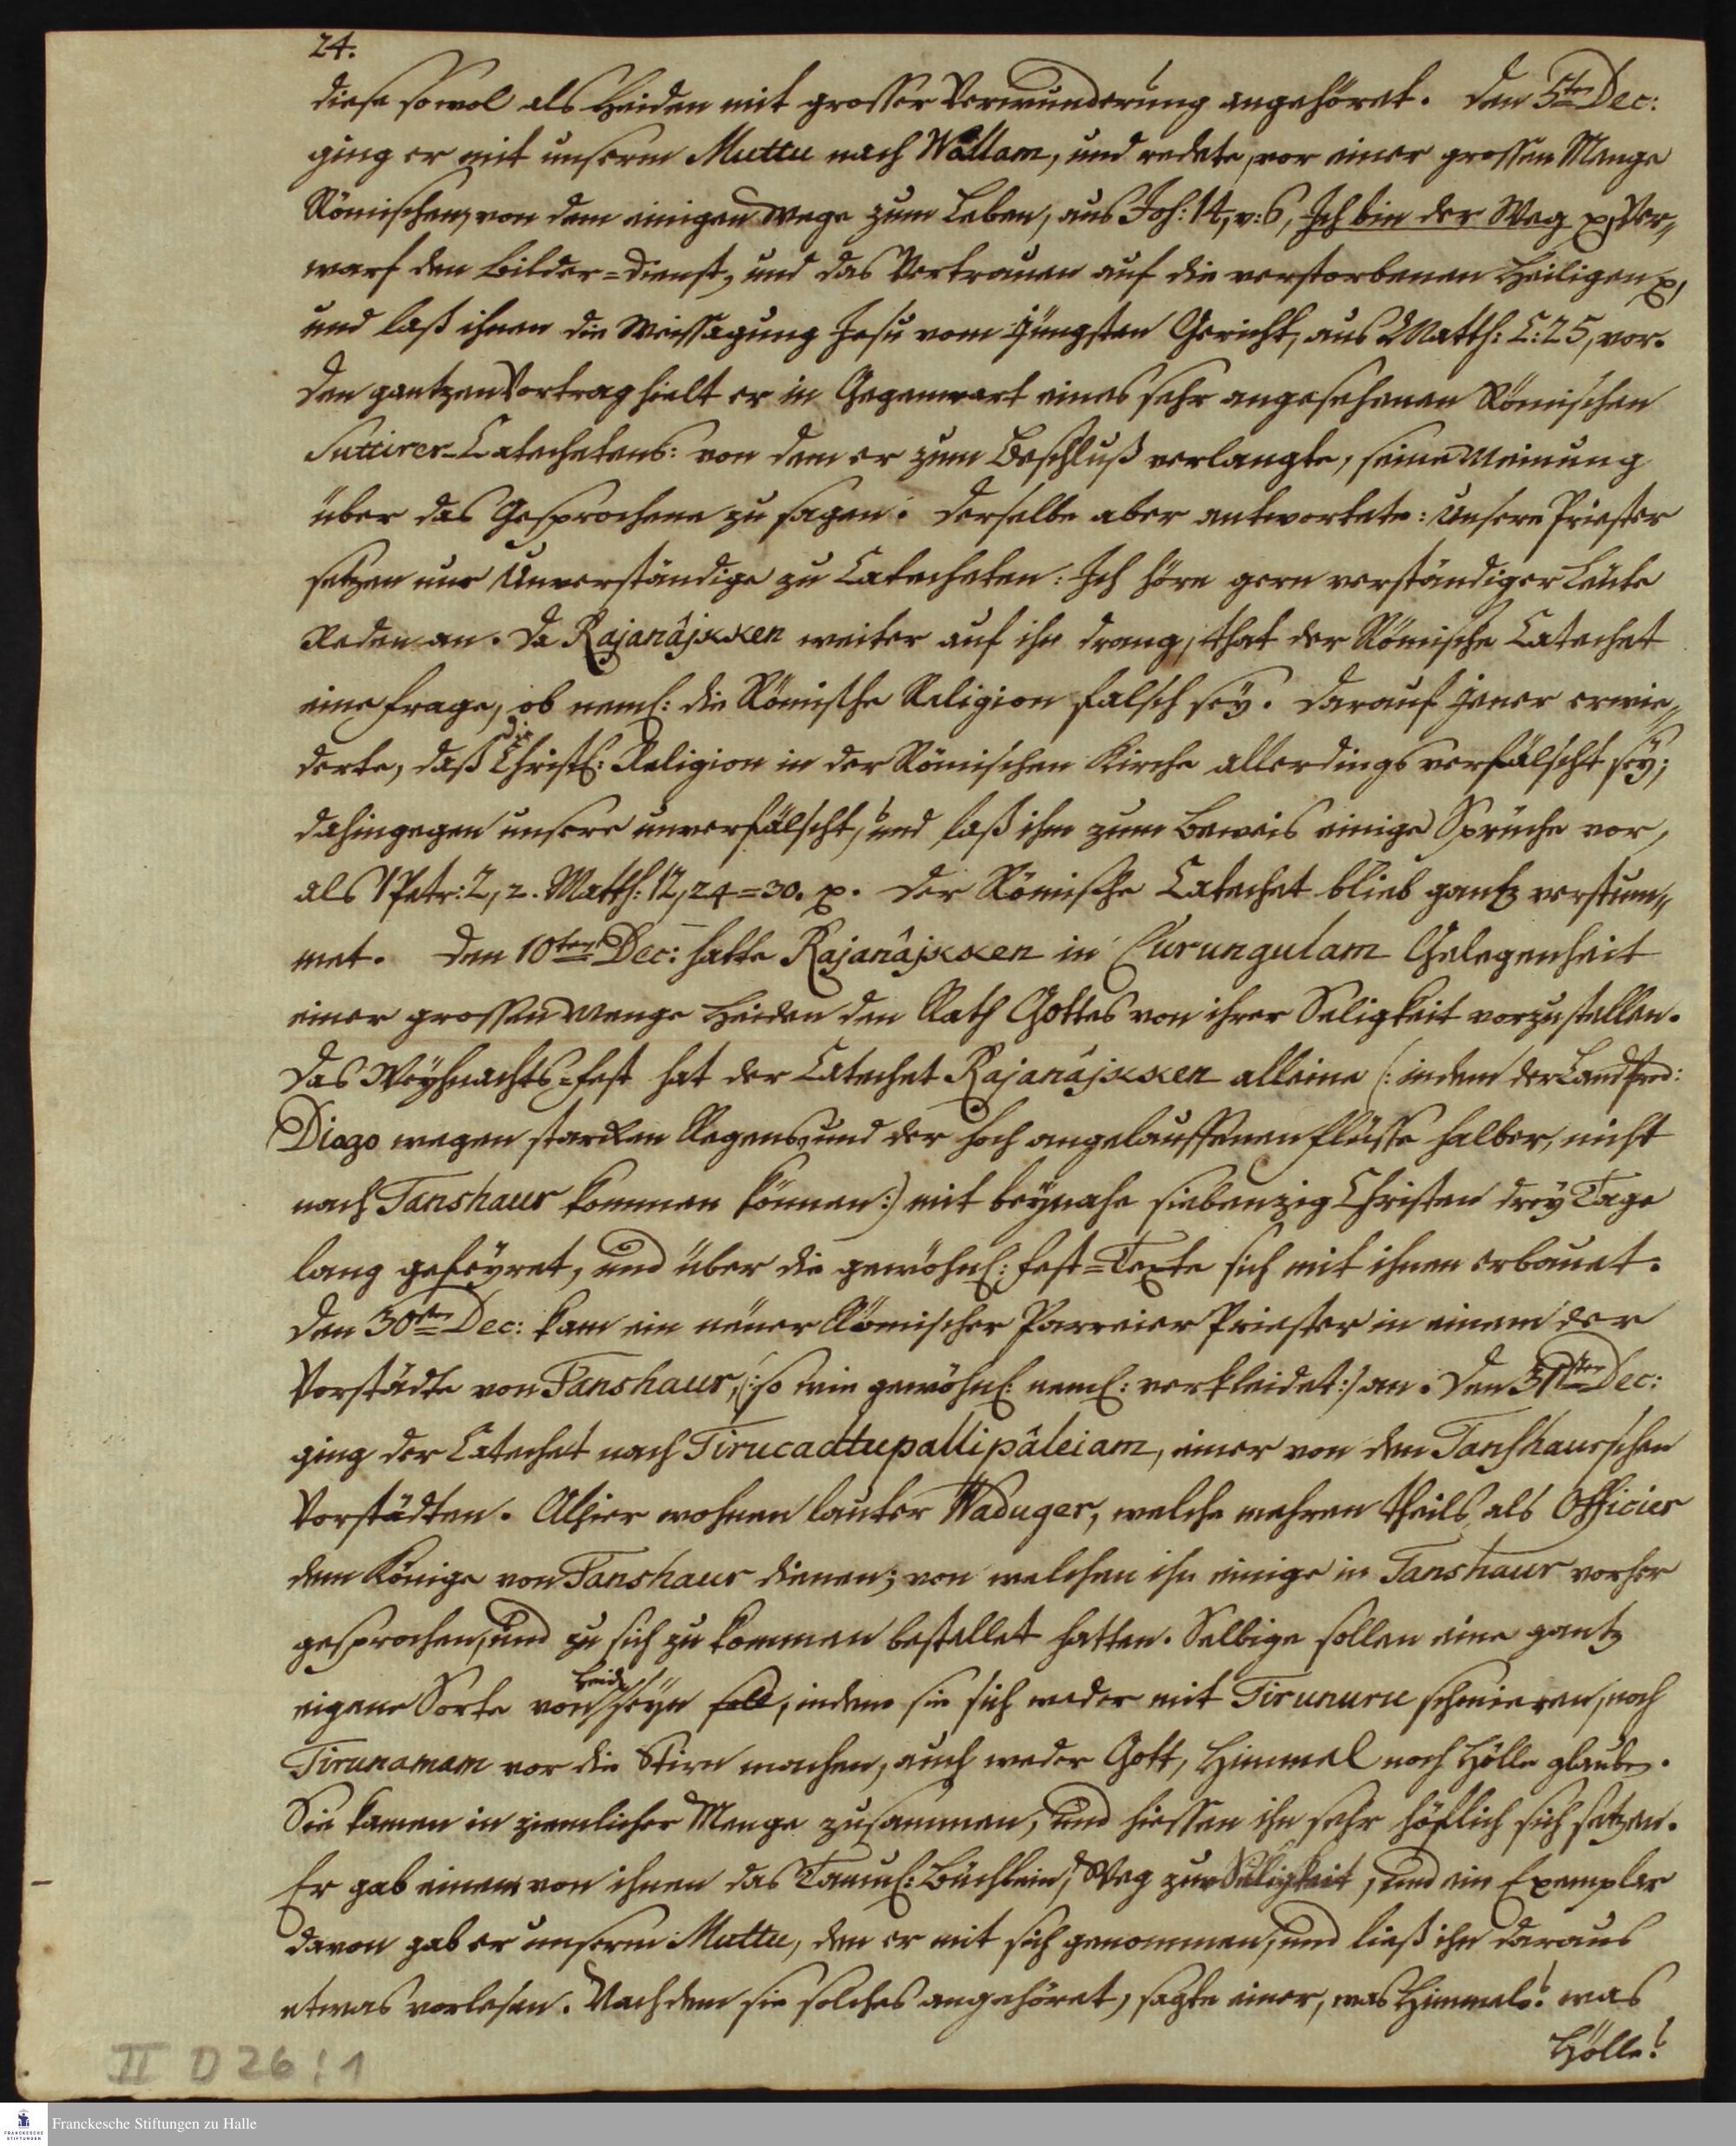 24.
diese sowol als Heiden mit grosser Verwunderung angehöret. Den 5ten Dec:
ging er mit unserm Muttu nach Wallam, und redete, vor einer grossen Menge
Römischen, von dem einigen Wege zum Leben, aus Joh: 14, v: 6, Ich bin der Weg p, Ver„
warf den Bilder=Dienst, und das Vertrauen auf die verstorbenen Heiligen p,
und laß ihnen die Weissagung Jesu vom jüngsten Gericht, aus Matth: C: 25, vor.
Den gantzen Vortrag hielt er in Gegenwart eines sehr angesehenen Römischen
Suttirer-Catechetens: von dem er zum Beschluß verlangte, seine Meinung
über das Gesprochene zu sagen. Derselbe aber antwortete: Unsere Priester
setzen nur Unverständige zu Catecheten: Ich höre gern verständiger Leute
Reden an. Da Rajanâjkken weiter auf ihn drang, that der Römische Catechet
eine Frage, ob neml: die Römische Religion falsch sey. Darauf jener erwie„
derte, daß die Christl: Religion in der Römischen Kirche allerdings verfälscht sey;
dahingegen unsere unverfälscht, und laß ihm zum Beweis einige Sprüche vor,
als 1 Petr: 2, 2. Matth: 12, 24=30. p. Der Römische Catechet blieb gantz verstum„
met. Den 10ten Dec: hatte Rajanâjkken in Curungulam Gelegenheit
einer grossen Menge Heiden den Rath Gottes von ihrer Seligkeit vorzustellen.
Das Weyhnachts=Fest hat der Catechet Rajanâjkken alleine (: indem der Landpred:
Diogo wegen starcken Regens, und der hoch angelauffenen Flüsse halber, nicht
nach Tanshaur kommen können:) mit beynahe siebenzig Christen drey Tage
lang gefeyret, und über die gewöhnl: Fest=Texte sich mit ihnen erbauet.
Den 30ten Dec: kam ein neuer Römischer Parreier Priester in einem der
Vorstädte von Tanshaur, (: so wie gewöhnl: neml: verkleidet:) an. Den 31sten Dec:
ging der Catechet nach Tirucadtupallipâleiam, einer von den Tanshaurschen
Vorstädten. Alhier wohnen lauter Waduger, welche mehren theils als Officier
dem Könige von Tanshaur dienen; von welchen ihn einige in Tanshaur vorher
gesprochen, und zu sich zu kommen bestellet hatten. Selbige sollen eine gantz
eigene Sorte von Heid: seyn soll, indem sie sich weder mit Tirunuru schmieren, noch
Tirunamam vor die Stirn machen, auch weder Gott, Himmel noch Hölle glauben.
Sie kamen in ziemlicher Menge zusammen, und hiessen ihn sehr höflich sich setzen.
Er gab einem von ihnen das Tamul: Büchlein, d. Weg zur Seligkeit, und ein Exemplar
davon gab er unserm Muttu, den er mit sich genommen, und ließ ihn daraus
etwas vorlesen. Nachdem sie solches angehöret, sagte einer, was Himmel! was
Hölle!
II D 26:1
Franckesche Stiftungen zu Halle